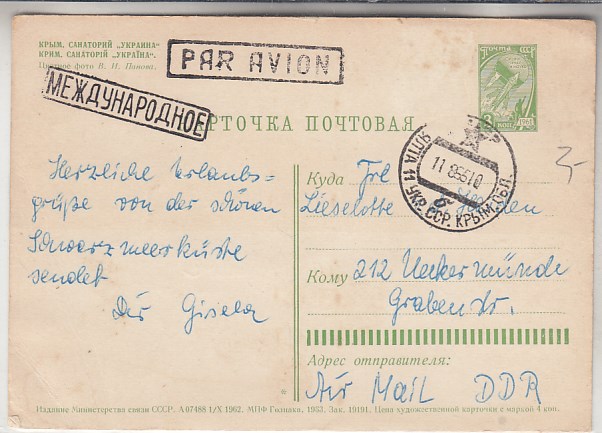 КРЫМ. САНАТОРИЙ „УКРАИНА“
КРИМ. САНАТОРІЙ „УКРАЇНА“.
Цветное фото В. И. Попова.
PAR AVION
МЕЖДУНАРОДНОЕ
КАРТОЧКА ПОЧТОВАЯ
ПОЧТА СССР
3 КОП 1961
ЯЛТА 11 УКР. ССР. КРЫМ. ОБЛ.
Herzliche Urlaubs-
grüße von der schönen
Schwarzmeerküste
sendet
Dir Gisela
Куда Frl
Lieselotte
Кому 212 Ueckermünde
Grabenstr.
Адрес отправителя:
Air Mail DDR
3-
Издание Министерства связи СССР. А07488 1/X 1962. МПФ Гознака. 1963. Зак. 19191. Цена художественной карточки с маркой 4 коп.